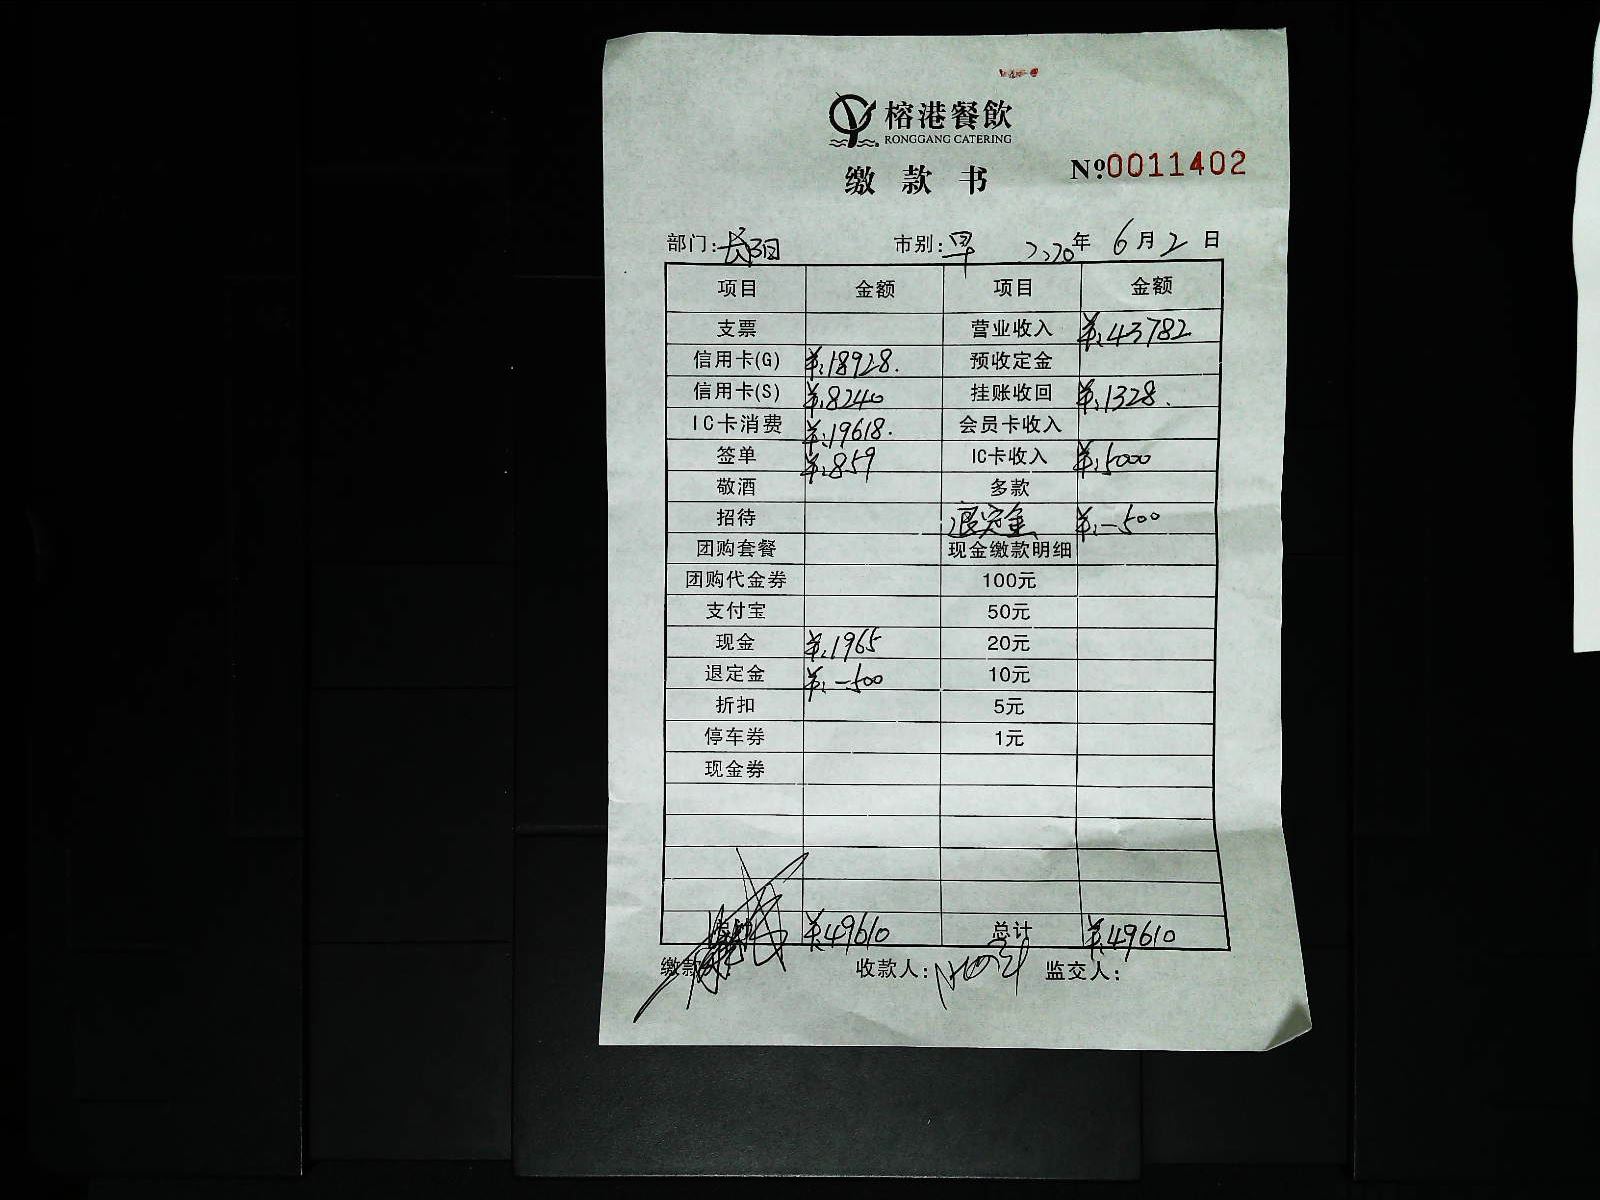 榕港餐飲
RONGGANG CATERING
缴款书 №0011402
部门: 市别:早 2020年6月2日
项目 金额 项目 金额
支票 营业收入 ¥:43782
信用卡(G) ¥:18928. 预收定金
信用卡(S) ¥:8240 挂账收回 ¥:1328.
IC卡消费 ¥:19618. 会员卡收入
签单 ¥:859 IC卡收入 ¥:5000
敬酒 多款
招待 退定金 ¥:-500
团购套餐 现金缴款明细
团购代金券 100元
支付宝 50元
现金 ¥:1965 20元
退定金 ¥:-500 10元
折扣 5元
停车券 1元
现金券
¥:49610 总计 ¥:49610
缴款 收款人: 监交人: